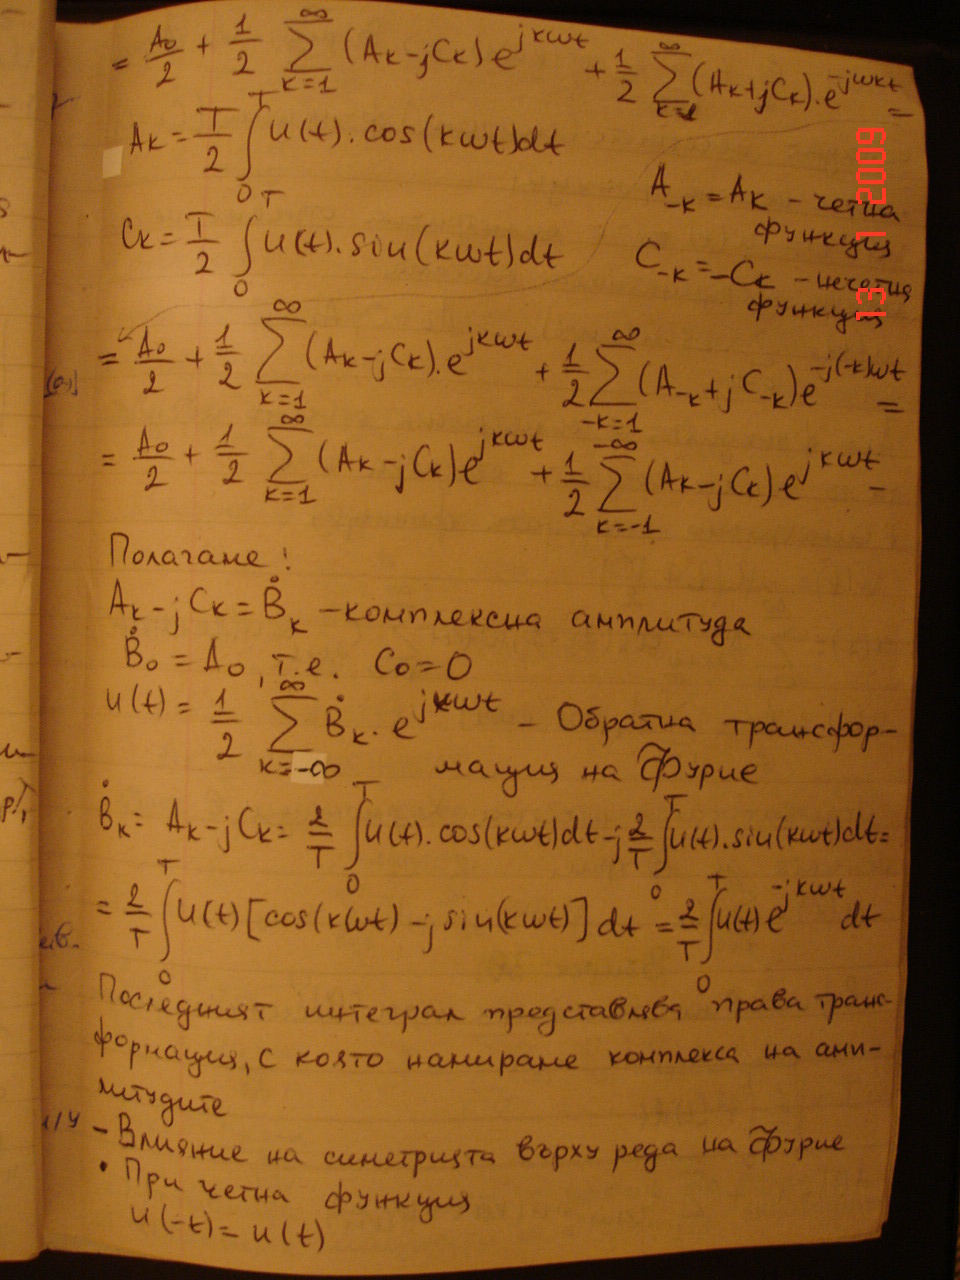 = A₀/2 + 1/2 ∑_{k=1}^{∞} (Aₖ-jCₖ) e^{jkωt} + 1/2 ∑_{k=1}^{∞} (Aₖ+jCₖ).e^{-jωkt} =
Aₖ = T/2 ∫₀ᵀ u(t).cos(kωt)dt
A₋ₖ = Aₖ - четна
функция
Cₖ = T/2 ∫₀ᵀ u(t).sin(kωt)dt
C₋ₖ = -Cₖ - нечетна
функция
= A₀/2 + 1/2 ∑_{k=1}^{∞} (Aₖ-jCₖ).e^{jkωt} + 1/2 ∑_{-k=1}^{∞} (A₋ₖ+jC₋ₖ)e^{-j(-k)ωt} =
= A₀/2 + 1/2 ∑_{k=1}^{∞} (Aₖ-jCₖ)e^{jkωt} + 1/2 ∑_{k=-1}^{-∞} (Aₖ-jCₖ)e^{jkωt} -
Полагаме:
Aₖ-jCₖ = Ḃₖ - комплексна амплитуда
Ḃ₀ = A₀, т.е. C₀=0
u(t) = 1/2 ∑_{k=-∞}^{∞} Ḃₖ.e^{jkωt} - Обратна трансфор-
мация на Фурие
Ḃₖ = Aₖ-jCₖ = 2/T ∫₀ᵀ u(t).cos(kωt)dt - j 2/T ∫₀ᵀ u(t).sin(kωt)dt =
= 2/T ∫₀ᵀ u(t)[cos(kωt) - j sin(kωt)]dt = 2/T ∫₀ᵀ u(t)e^{-jkωt} dt
Последният интеграл представлява права транс-
формация, с която намираме комплекса на амп-
литудите
- Влияние на симетрията върху реда на Фурие
• При четна функция
u(-t) = u(t)
13 1 2009